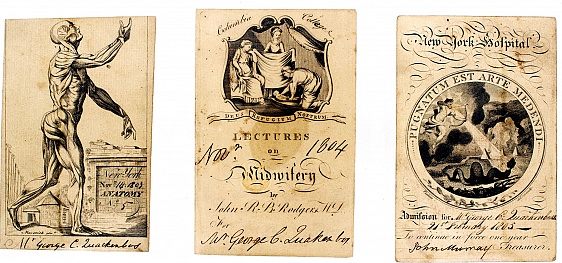 New York
Nov. 14 1803
ANATOMY
No. 5
Mr George C. Quackenbos
Columbia College
DEUS REFUGIUM NOSTRUM
LECTURES
on
Novr. 1804
Midwifery
by
John R. B. Rodgers, M.D.
For
Mr George C. Quackenbos
New York Hospital
PUGNATUM EST ARTE MEDENDI
Admission for Mr George C. Quackenbos
21st February 1803
To continue in force one year
John Murray Treasurer.